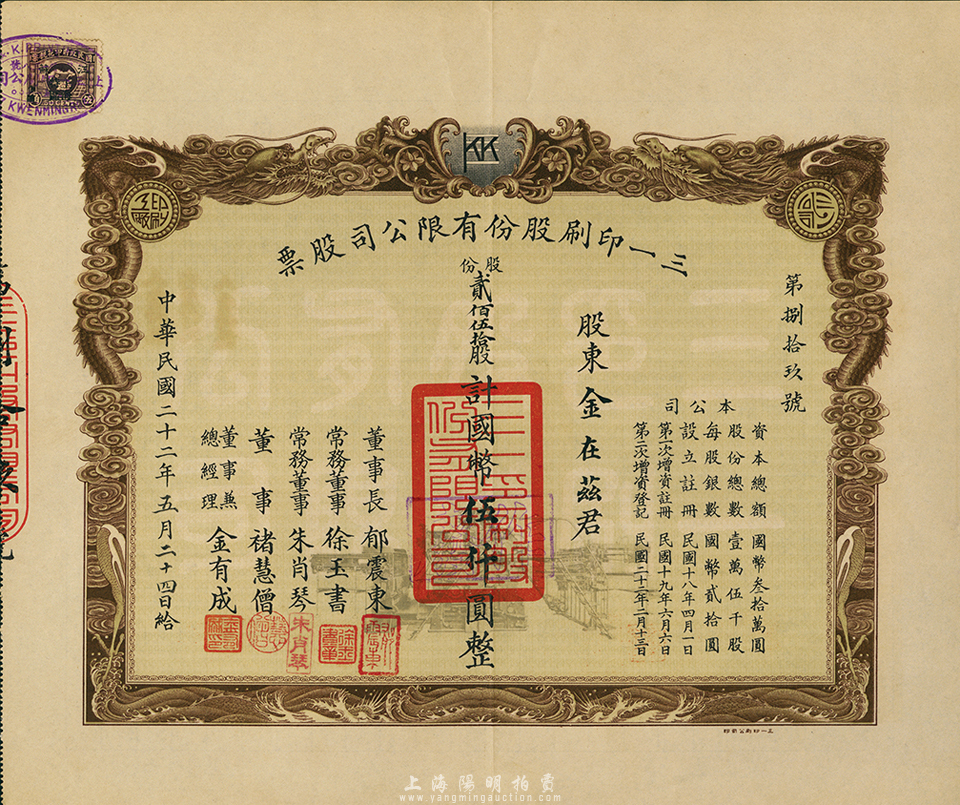 KK
三一印刷股份有限公司股票
第捌拾玖號
本公司
資本總額 國幣叁拾萬圓
股份總數 壹萬伍千股
每股銀數 國幣貳拾圓
設立註冊 民國十八年四月一日
第一次增資註冊 民國十九年六月六日
第二次增資登記 民國二十二年二月十三日
股東 金在茲君
股份
貳佰伍拾股計國幣伍仟圓整
董事長 郁震東
常務董事 徐玉書
常務董事 朱肖琴
董事 褚慧僧
董事兼總經理 金有成
中華民國二十二年五月二十四日給
朱肖琴
三一印刷公司印
KWENMING
上海陽明拍賣
www.yangmingauction.com